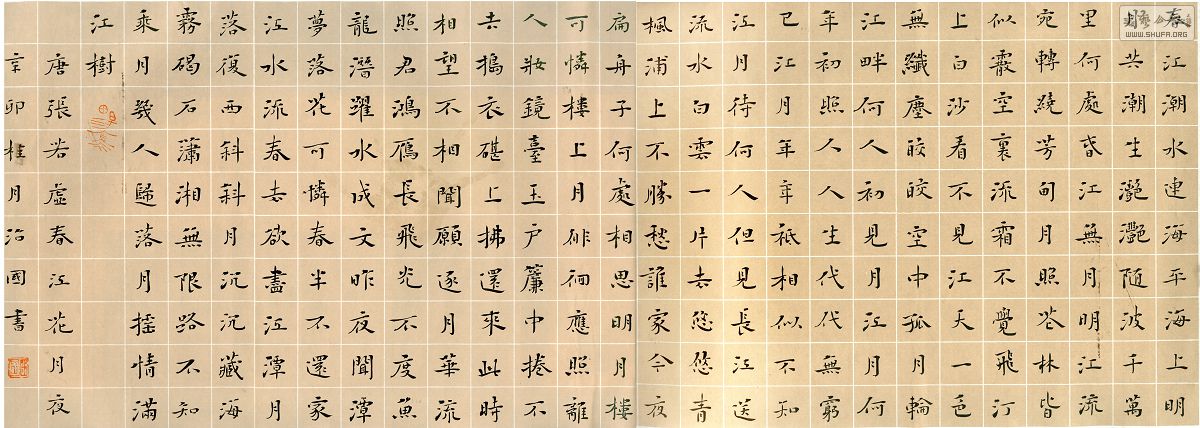 春江潮水連海平海上明
月共潮生灩灩隨波千萬
里何處春江無月明江流
宛轉繞芳甸月照花林皆
似霰空裏流霜不覺飛汀
上白沙看不見江天一色
無纖塵皎皎空中孤月輪
江畔何人初見月江月何
年初照人人生代代無窮
已江月年年祇相似不知
江月待何人但見長江送
流水白雲一片去悠悠青
楓浦上不勝愁誰家今夜
扁舟子何處相思明月樓
可憐樓上月徘徊應照離
人妝鏡臺玉戶簾中捲不
去搗衣碪上拂還來此時
相望不相聞願逐月華流
照君鴻雁長飛光不度魚
龍潛躍水成文昨夜聞潭
夢落花可憐春半不還家
江水流春去欲盡江潭月
落復西斜斜月沉沉藏海
霧碣石瀟湘無限路不知
乘月幾人歸落月搖情滿
江樹
唐張若虛春江花月夜
辛卯桂月治國書
WWW.SHUFA.ORG